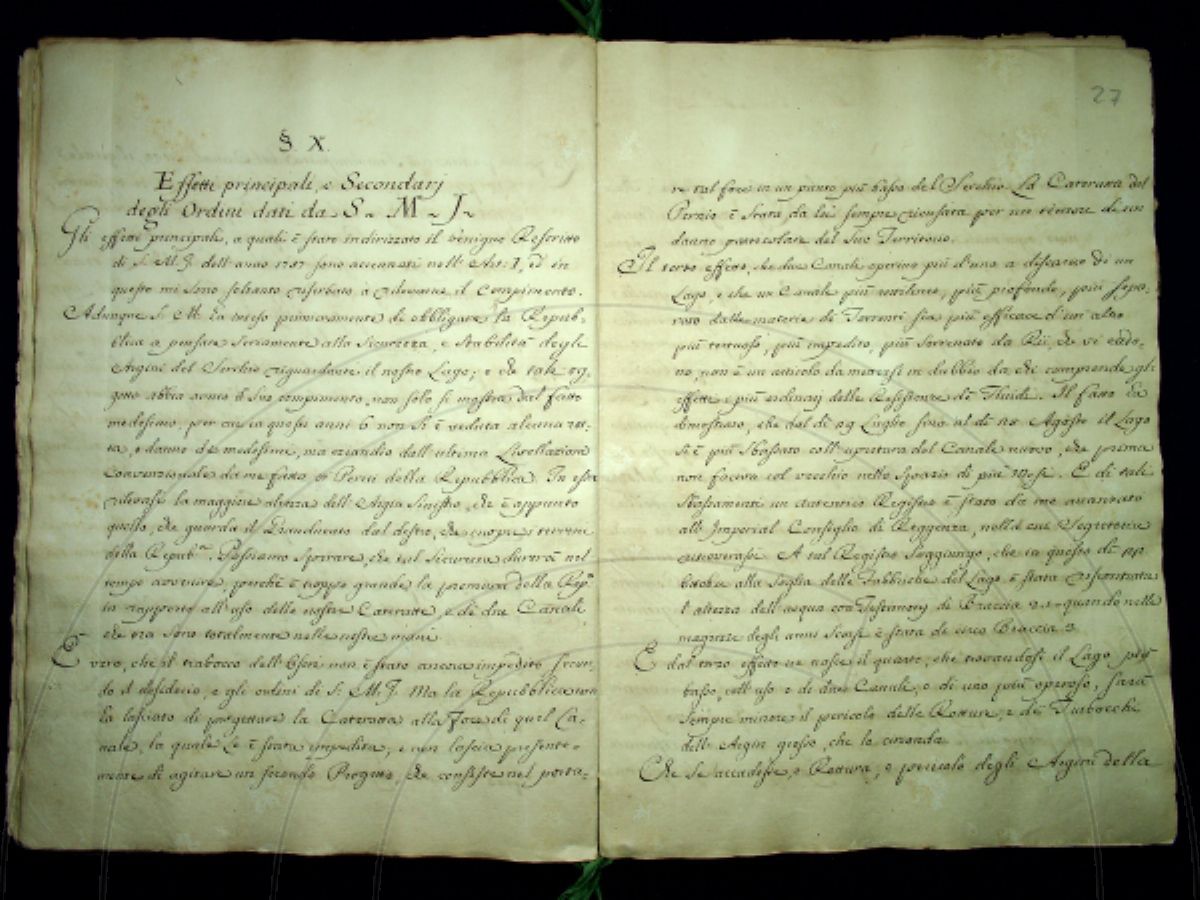 §. X.
Effetti principali, e Secondarj
degli Ordini dati da S. M. I.
Gli effetti principali, a quali è stato indirizzato il benigno Rescritto
di S. M. I. dell'anno 1757 sono accennati nell'Art. I, ed in
questo mi sono soltanto riserbato a ridurne il Compimento.
Adunque S. M. ha inteso primieramente di obbligare la Repub-
blica a pensare seriamente alla Sicurezza e Stabilità degli
Argini del Serchio riguardante il nostro Lago; e che tale og-
getto abbia avuto il suo compimento, non solo si mostra dal fatto
medesimo, per cui in questi anni 6 non si è veduta alcuna rot-
ta, o danno de medesimi, ma eziandio dall'ultima Livellazione
Convenzionale da me fatta Periti della Repubblica. In essa
ritrovasi la maggiore altezza dell'Argin Sinistro, che è appunto
quello, che guarda il dal destro, che cuopre i terreni
della Repub.ca. Possiamo sperare, che tal Sicurezza durerà nel
tempo avvenire, perchè è troppo grande la premura della Rep.
in rapporto all'uso delle nostre Cateratte, e di due Canali,
che ora sono totalmente nelle nostre mani.
È vero, che il trabocco dell'Oseri non è stato ancora impedito secon-
do il desiderio, e gli ordini di S. M. I. Ma la Repubblica non
ha lasciato di progettare la Cateratta alla Foce di quel Ca-
nale, la quale le è stata impedita; e non lascia presente-
mente di agitare un secondo Progetto, che consiste nel porta-
27
re tal foce in un punto più basso del Serchio. La Cateratta del
è stata da lei sempre ricusata per un timore di un
danno particolare del Suo Territorio.
Il terzo effetto, che due Canali operino più d'uno a discarico di un
Lago, e che un Canale più rettilineo, più profondo, più sepa-
rato dalle materie di Torrenti sia più efficace d'un altro
più tortuoso, più impedito, più interrato da Rii, che vi cado-
no, non è un articolo da mettersi in dubbio da chi comprende gli
effetti i più ordinarj delle Resistenze de' Fluidi. Il fatto ha
dimostrato, che dal dì 29 Luglio sino al dì Agosto il Lago
si è più sbassato coll'apertura del Canale nuovo, che prima
non faceva col vecchio nello spazio di più Mesi. E di tali
Sbassamenti un autentico Registro è stato da me avanzato
all'Imperial Consiglio di Reggenza, nella cui Segreteria
ritroverassi. A tal Registro soggiungo, che in questo dì
Ottobre alla Soglia delle Fabbriche del Lago è stata riscontrata
l'altezza dell'acqua con Testimonj di Braccia quando nelle
magrezze degli anni scorsi è stata di circa Braccia
E dal terzo effetto ne nasce il quarto, che trovandosi il Lago più
basso, coll'uso e di due Canali, e di uno più operoso, sarà
sempre minore il pericolo delle Rotture, e de' Trabocchi
dell'Argin grosso, che lo circonda.
Che se accadesse, o Rottura, o pericolo degli Argini della